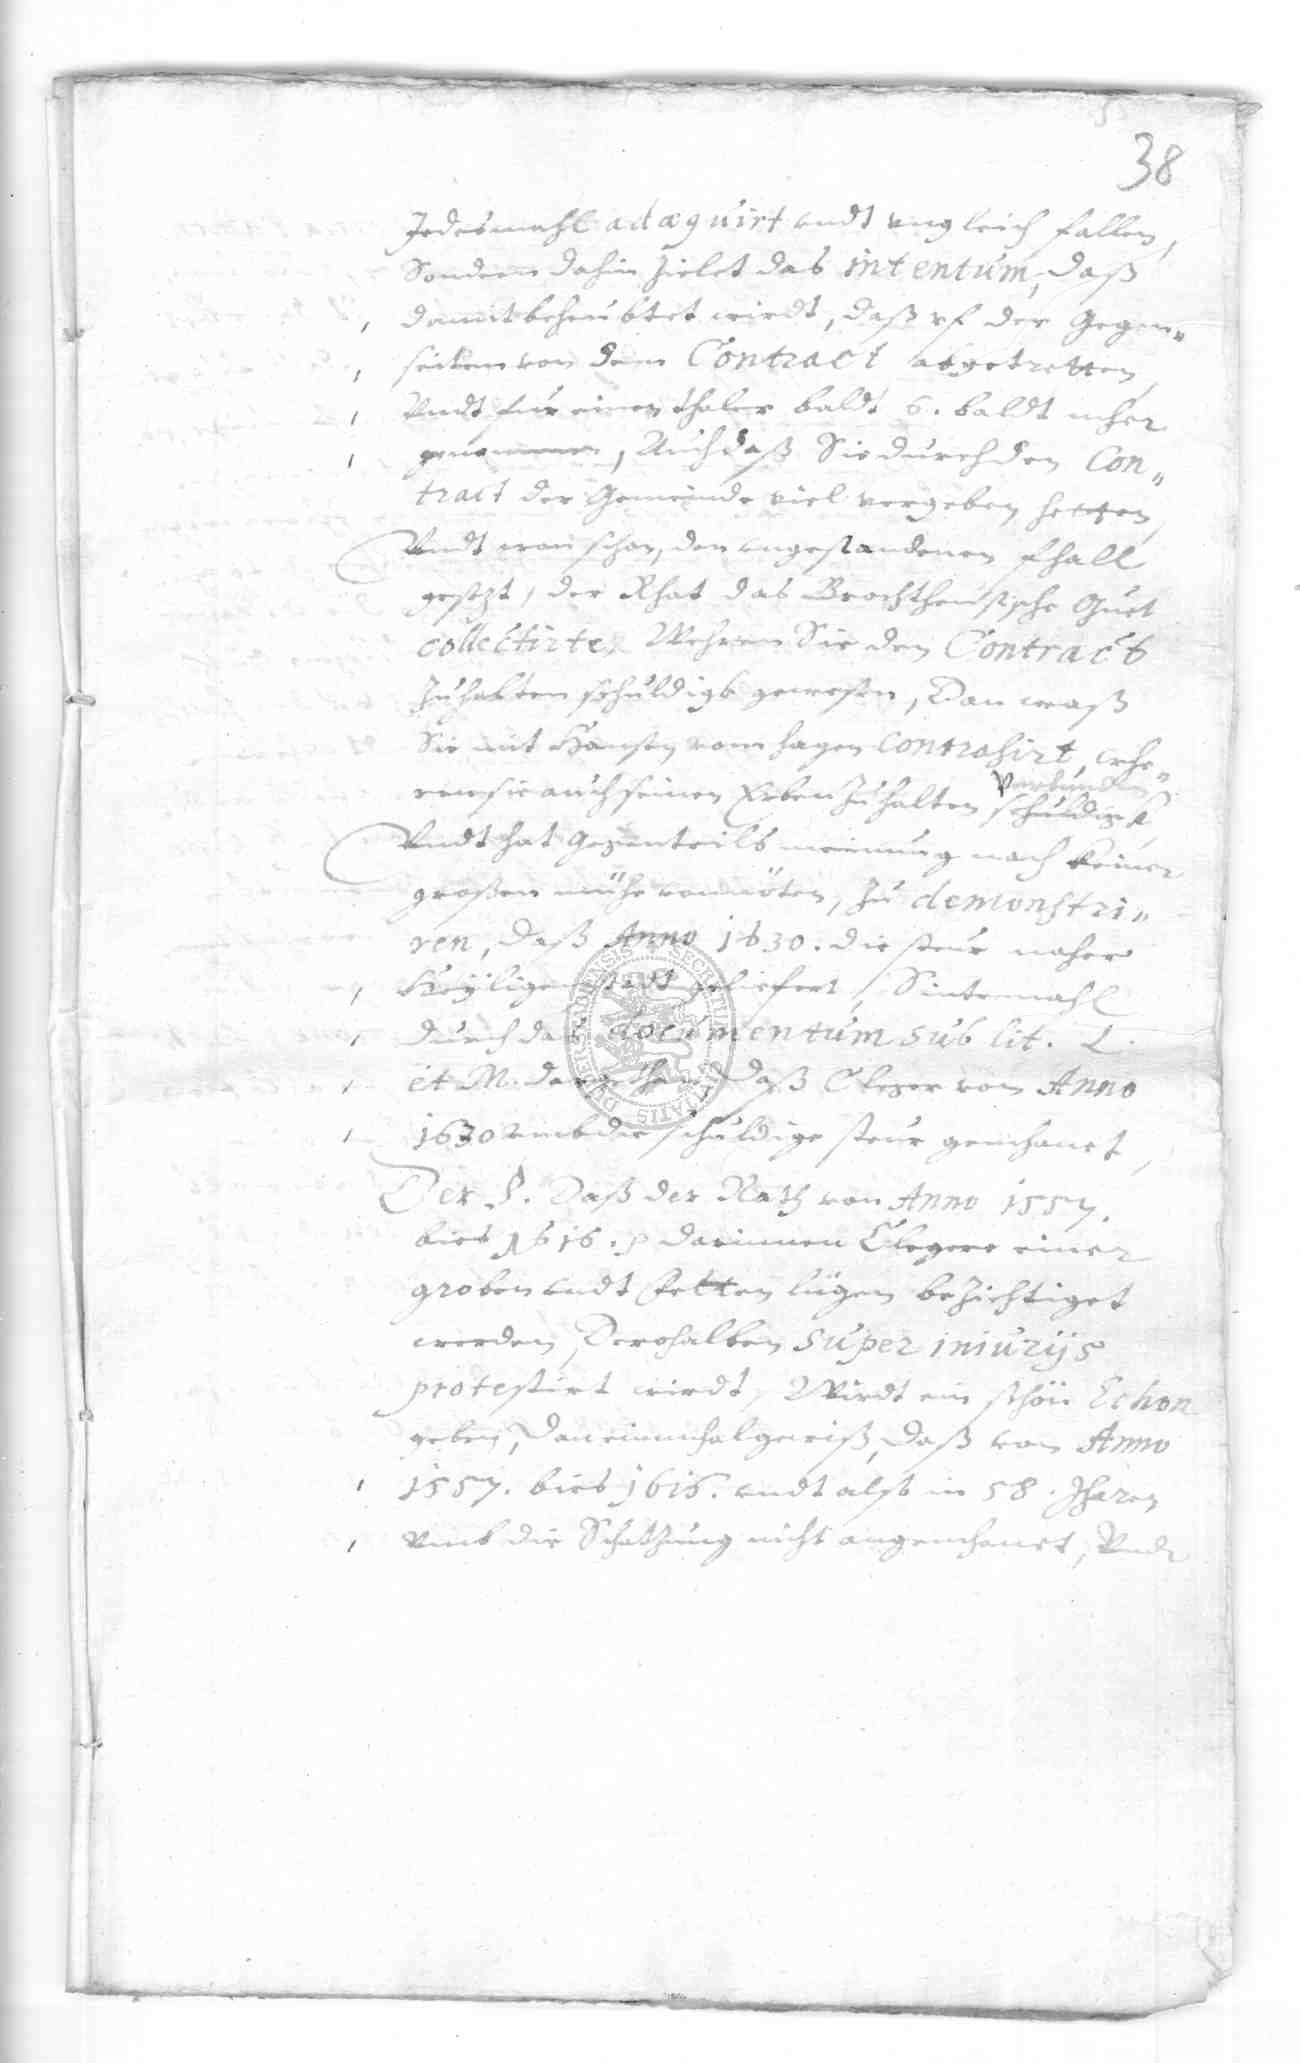 38
Jedesmahl adæquirt undt ungleich fallen,
Sondern dahin zielet das intentum, daß
damit beheubtet wirdt, daß uf der Gegen„
seiten von dem Contract abgetretten,
Undt fur einen thaler baldt 6. baldt mher
genommen, Auch daß Sie durch den Con„
tract der Gemeinde viel vergeben hetten,
Undt wan schon, den ungestandenen fhall
gesetzt, der Rhat das Brochtheusische Guet
collectirte, Wehren Sie den Contract
Zuhalten schuldigk gewesen, Dan waß
Sie mit Hansen vom hagen contrahirt, whe„
ren sie auch seinen Erben Zuhalten schuldigk
verbunden
Undt hat Gegenteils meinung nach keiner
großen mühe vonnöten, zu demonstri„
ren, daß Anno 1630. die steur naher
Heyligenstadt geliefert, Sintemahl
durch das documentum sub lit. L.
et M. dargethan, daß Cleger von Anno
1630 umb die schuldige steur gemhanet,
Der §. Daß der Rath von Anno 1557.
bies 1616. p darinnen Clegere einer
groben undt fetten lügen bezichtiget
werden, Derohalben super iniurijs
protestirt wirdt, Wirdt ein schön Echon
geben, Dan einmhal gewiß, daß von Anno
1557. bies 1616. undt alß in 58. Jharen
umb die Schatzung nicht angemhanet, Undt
SECRETUM CIVITATIS DUDERSTADIENSIS